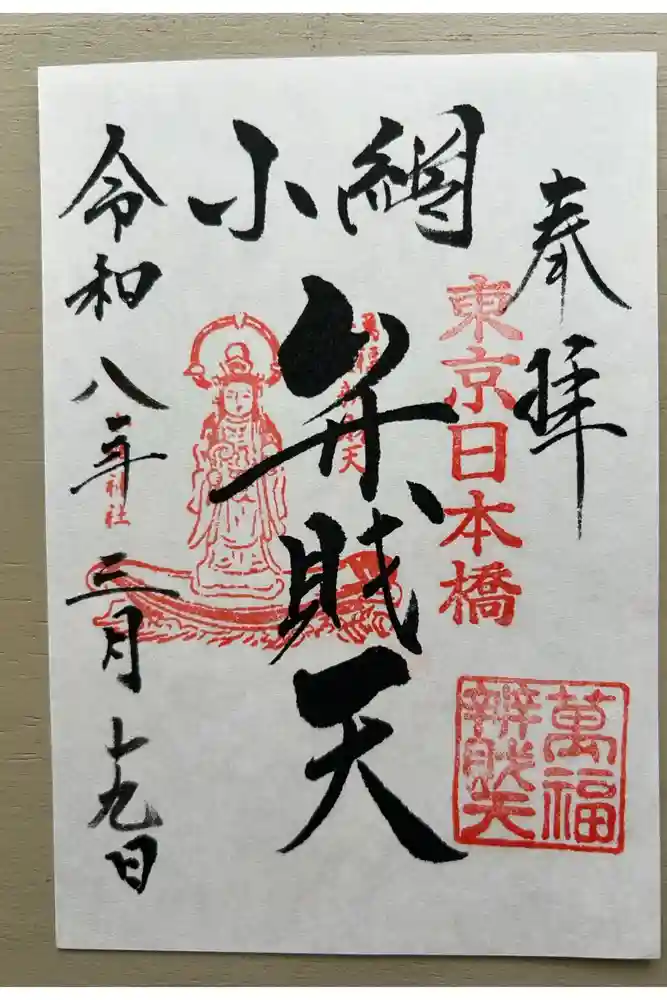 奉拝
東京日本橋
萬福
辨財天
小網
弁財天
神社
令和八年三月十九日